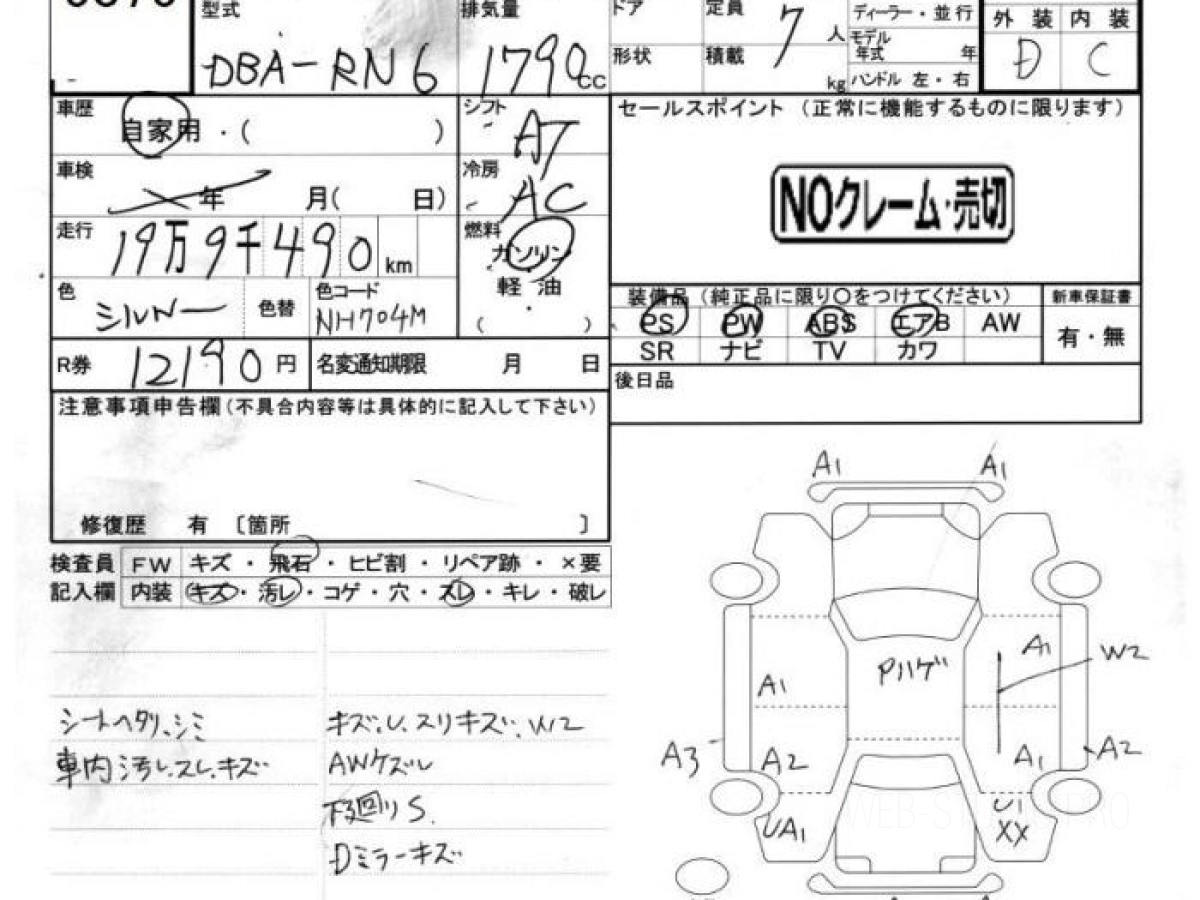 型式 DBA-RN6
排気量 1790 CC
ドア
定員 7 人
ディーラー・並行
外装 内装
形状
積載 kg
モデル年式 年
D C
ハンドル 左・右
車歴 自家用・( )
シフト AT
セールスポイント (正常に機能するものに限ります)
車検 年 月( 日)
冷房 AC
NOクレーム・売切
走行 19万9千490 km
燃料 ガソリン
軽油
・
( )
色 シルバー 色替 色コード NH704M
装備品 (純正品に限り〇をつけてください) 新車保証書
PS PW ABS エアB AW 有・無
SR ナビ TV カワ
R券 12190 円 名変通知期限 月 日
後日品
注意事項申告欄(不具合内容等は具体的に記入して下さい)
修復歴 有 〔箇所 〕
検査員 FW キズ・飛石・ヒビ割・リペア跡・×要
記入欄 内装 キズ・汚レ・コゲ・穴・スレ・キレ・破レ
シートヘタリ、シミ
車内汚レ、スレ、キズ
キズ、U、スリキズ、W2
AWケズレ
下回りS.
Dミラーキズ
A1 A1
A1 W2
Pハゲ
A1
A3 A2 A1 A2
UA1 U1
XX